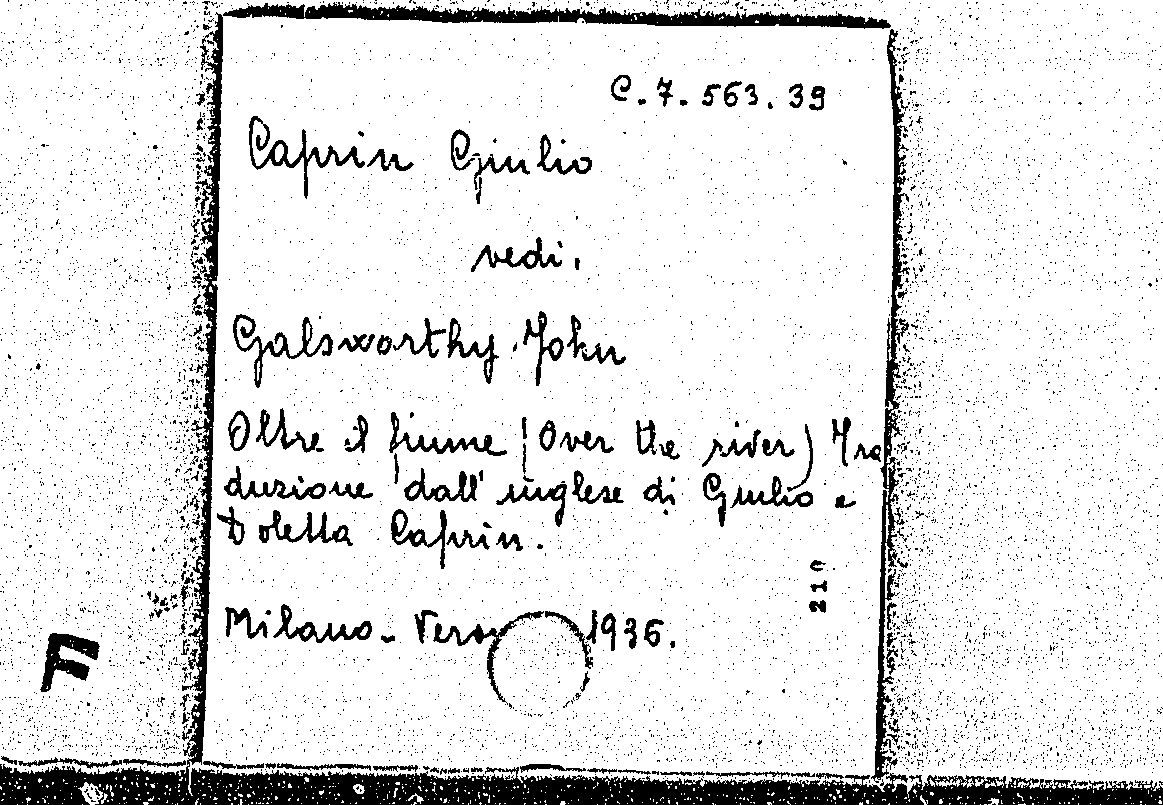 C.7.563.39
Caprin Giulio
vedi.
Galsworthy John
Oltre il fiume (Over the river) Tra
duzione dall'inglese di Giulio e
Doletta Caprin.
210
Milano - Vero 1936.
F